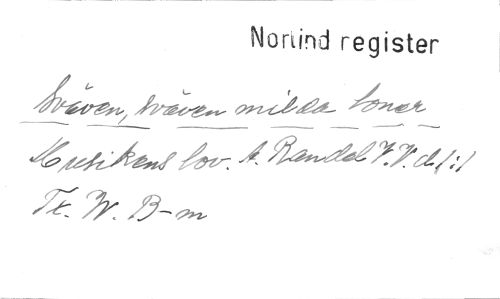 Norlind register
Sväven, sväven milda toner
Musikens lov. A. Randel V. V. d. 1:1
Tx. W. B-m